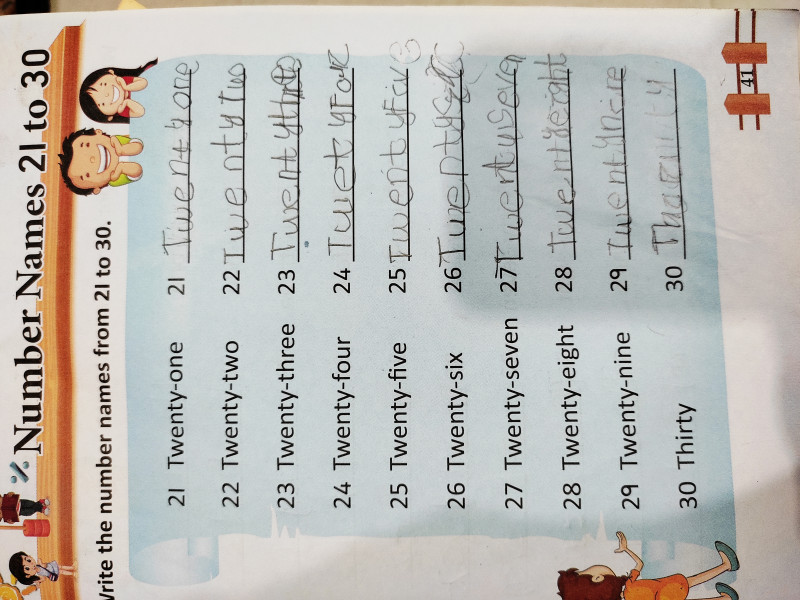 Number Names 21 to 30
Write the number names from 21 to 30.
21 Twenty-one 21 Twentyone
22 Twenty-two 22 Twentytwo
23 Twenty-three 23
24 Twenty-four 24 TwetyFor
25 Twenty-five 25 Twentyfive
26 Twenty-six 26
27 Twenty-seven 27 Twentyseven
28 Twenty-eight 28 Twentyeight
29 Twenty-nine 29 Twentynine
30 Thirty 30
41